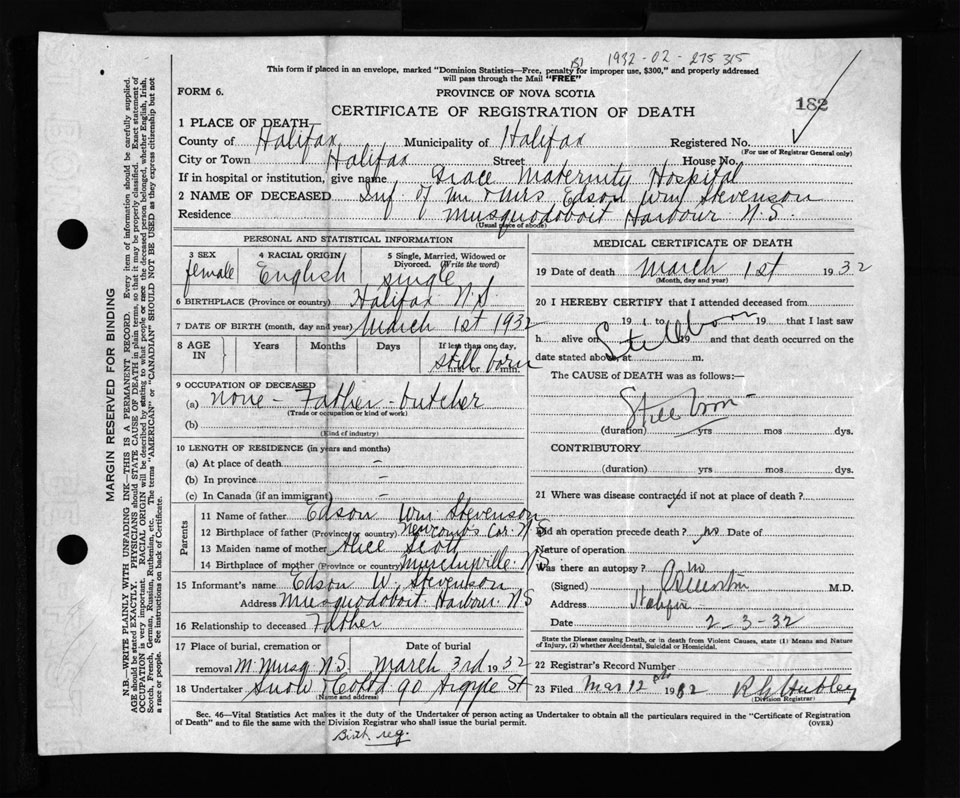 1932-02-275315
This form if placed in an envelope, marked "Dominion Statistics—Free, penalty for improper use, $300," and properly addressed
will pass through the Mail "FREE"
FORM 6.
PROVINCE OF NOVA SCOTIA
182
CERTIFICATE OF REGISTRATION OF DEATH
1 PLACE OF DEATH—
County of Halifax Municipality of Halifax Registered No.
(For use of Registrar General only)
City or Town Halifax Street House No.
If in hospital or institution, give name Grace Maternity Hospital
2 NAME OF DECEASED Inf. of Mr & Mrs Edson Wm Stevenson
Residence Musquodoboit Harbour N.S.
(Usual place of abode)
PERSONAL AND STATISTICAL INFORMATION
3 SEX 4 RACIAL ORIGIN 5 Single, Married, Widowed or
Divorced. (Write the word)
female English single
6 BIRTHPLACE (Province or country) Halifax N.S.
7 DATE OF BIRTH (month, day and year) March 1st 1932
8 AGE IN Years Months Days If less than one day,
still born
hrs. or min.
9 OCCUPATION OF DECEASED
(a) none - Father - butcher
(Trade or occupation or kind of work)
(b)
(Kind of industry)
10 LENGTH OF RESIDENCE (in years and months)
(a) At place of death –
(b) In province –
(c) In Canada (if an immigrant) –
Parents
11 Name of father Edson Wm Stevenson
12 Birthplace of father (Province or country) Newcomb Cor. N.S
13 Maiden name of mother Alice Scott
14 Birthplace of mother (Province or country) N.S.
15 Informant's name Edson W. Stevenson
Address Musquodoboit Harbour N.S
16 Relationship to deceased Father
17 Place of burial, cremation or Date of burial
removal M. Musq N.S. March 3rd 1932
18 Undertaker Snow & Co Ltd 90 Argyle St
(Name and address)
MEDICAL CERTIFICATE OF DEATH
19 Date of death March 1st 1932
(Month, day and year)
20 I HEREBY CERTIFY that I attended deceased from
19 to 19 that I last saw
Stillborn
h alive on 19 and that death occurred on the
date stated above at m.
The CAUSE of DEATH was as follows:—
Still born –
(duration) yrs mos dys.
CONTRIBUTORY
(duration) yrs mos dys.
21 Where was disease contracted if not at place of death?
Did an operation precede death? no Date of
Nature of operation
Was there an autopsy? no
(Signed) M.D.
Address Halifax
Date 2-3-32
State the Disease causing Death, or in death from Violent Causes, state (1) Means and Nature
of Injury, (2) whether Accidental, Suicidal or Homicidal.
22 Registrar's Record Number
23 Filed Mar 12th 1932
(Division Registrar)
Sec. 46—Vital Statistics Act makes it the duty of the Undertaker or person acting as Undertaker to obtain all the particulars required in the "Certificate of Registration
of Death" and to file the same with the Division Registrar who shall issue the burial permit.
(OVER)
Birth reg.
MARGIN RESERVED FOR BINDING
N.B.—WRITE PLAINLY WITH UNFADING INK—THIS IS A PERMANENT RECORD. Every item of information should be carefully supplied.
AGE should be stated EXACTLY. PHYSICIANS should STATE CAUSE OF DEATH in plain terms, so that it may be properly classified. Exact statement of
OCCUPATION is very important. RACIAL ORIGIN will be described by stating to what people or race the deceased person belonged, whether English, Irish,
Scotch, French, German, Russian, Ruthenian, etc. The terms "AMERICAN" or "CANADIAN" SHOULD NOT BE USED as they express citizenship but not
a race or people. See instructions on back of Certificate.